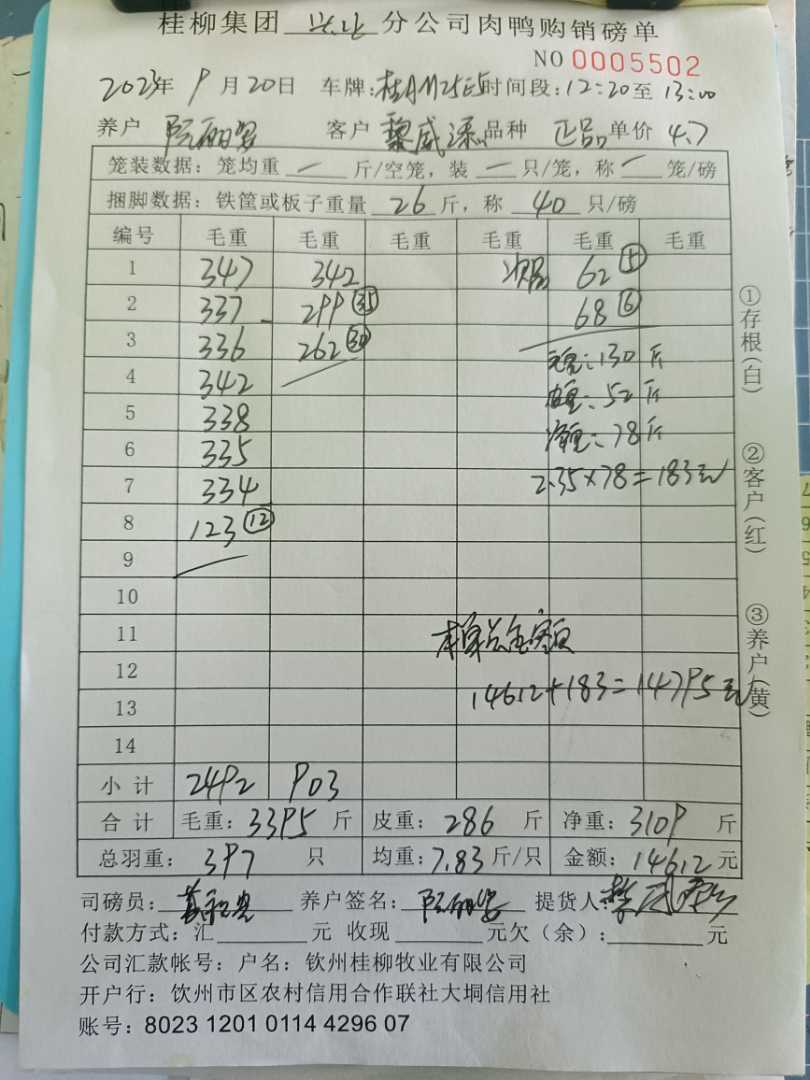 桂柳集团 分公司肉鸭购销磅单
NO 0005502
2023年 9月20日 车牌:桂AM25E5 时间段:12:20至13:00
养户 阮丽客户 黎威 品种 正品 单价 4.7
笼装数据:笼均重 — 斤/空笼,装 — 只/笼,称 — 笼/磅
捆脚数据:铁筐或板子重量 26 斤,称 40 只/磅
编号 毛重 毛重 毛重 毛重 毛重 毛重
1 347 342 次品 62 ⑤
2 337 299 ㉟ 68 ⑥
3 336 262 ㉚ 毛重:130斤
4 342 皮重:52斤
5 338 净重:78斤
6 335
7 334 2.35×78=183元
8 123 ⑫
9
10
11 本单总金额
12
13 14612+183=14795元
14
小计 2492 903
合计 毛重:3395斤 皮重:286斤 净重:3109斤
总羽重:397只 均重:7.83斤/只 金额:14612元
司磅员: 养户签名:阮丽 提货人:黎威
付款方式:汇 元 收现 元欠(余): 元
公司汇款帐号:户名:钦州桂柳牧业有限公司
开户行:钦州市区农村信用合作联社大垌信用社
账号:8023 1201 0114 4296 07
①存根(白)
②客户(红)
③养户(黄)